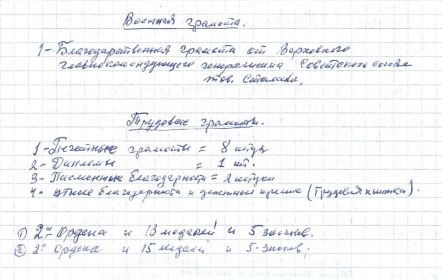 Военная грамота.
1-Благодарственная грамота от Верховного
главнокомандующего генералисима Советского союза
тов. Сталина.
Трудовые грамоты.
1-Печатные грамоты = 8 штук
2-Дипломы = 1 шт.
3-Письменные благодарности = 2 штуки
4- благодарности и денежные премии (Трудовая книжка).
① 2-Ордена и 13 медалей и 5 знаков.
② 2-Ордена и 15 медалей и 5-знаков.